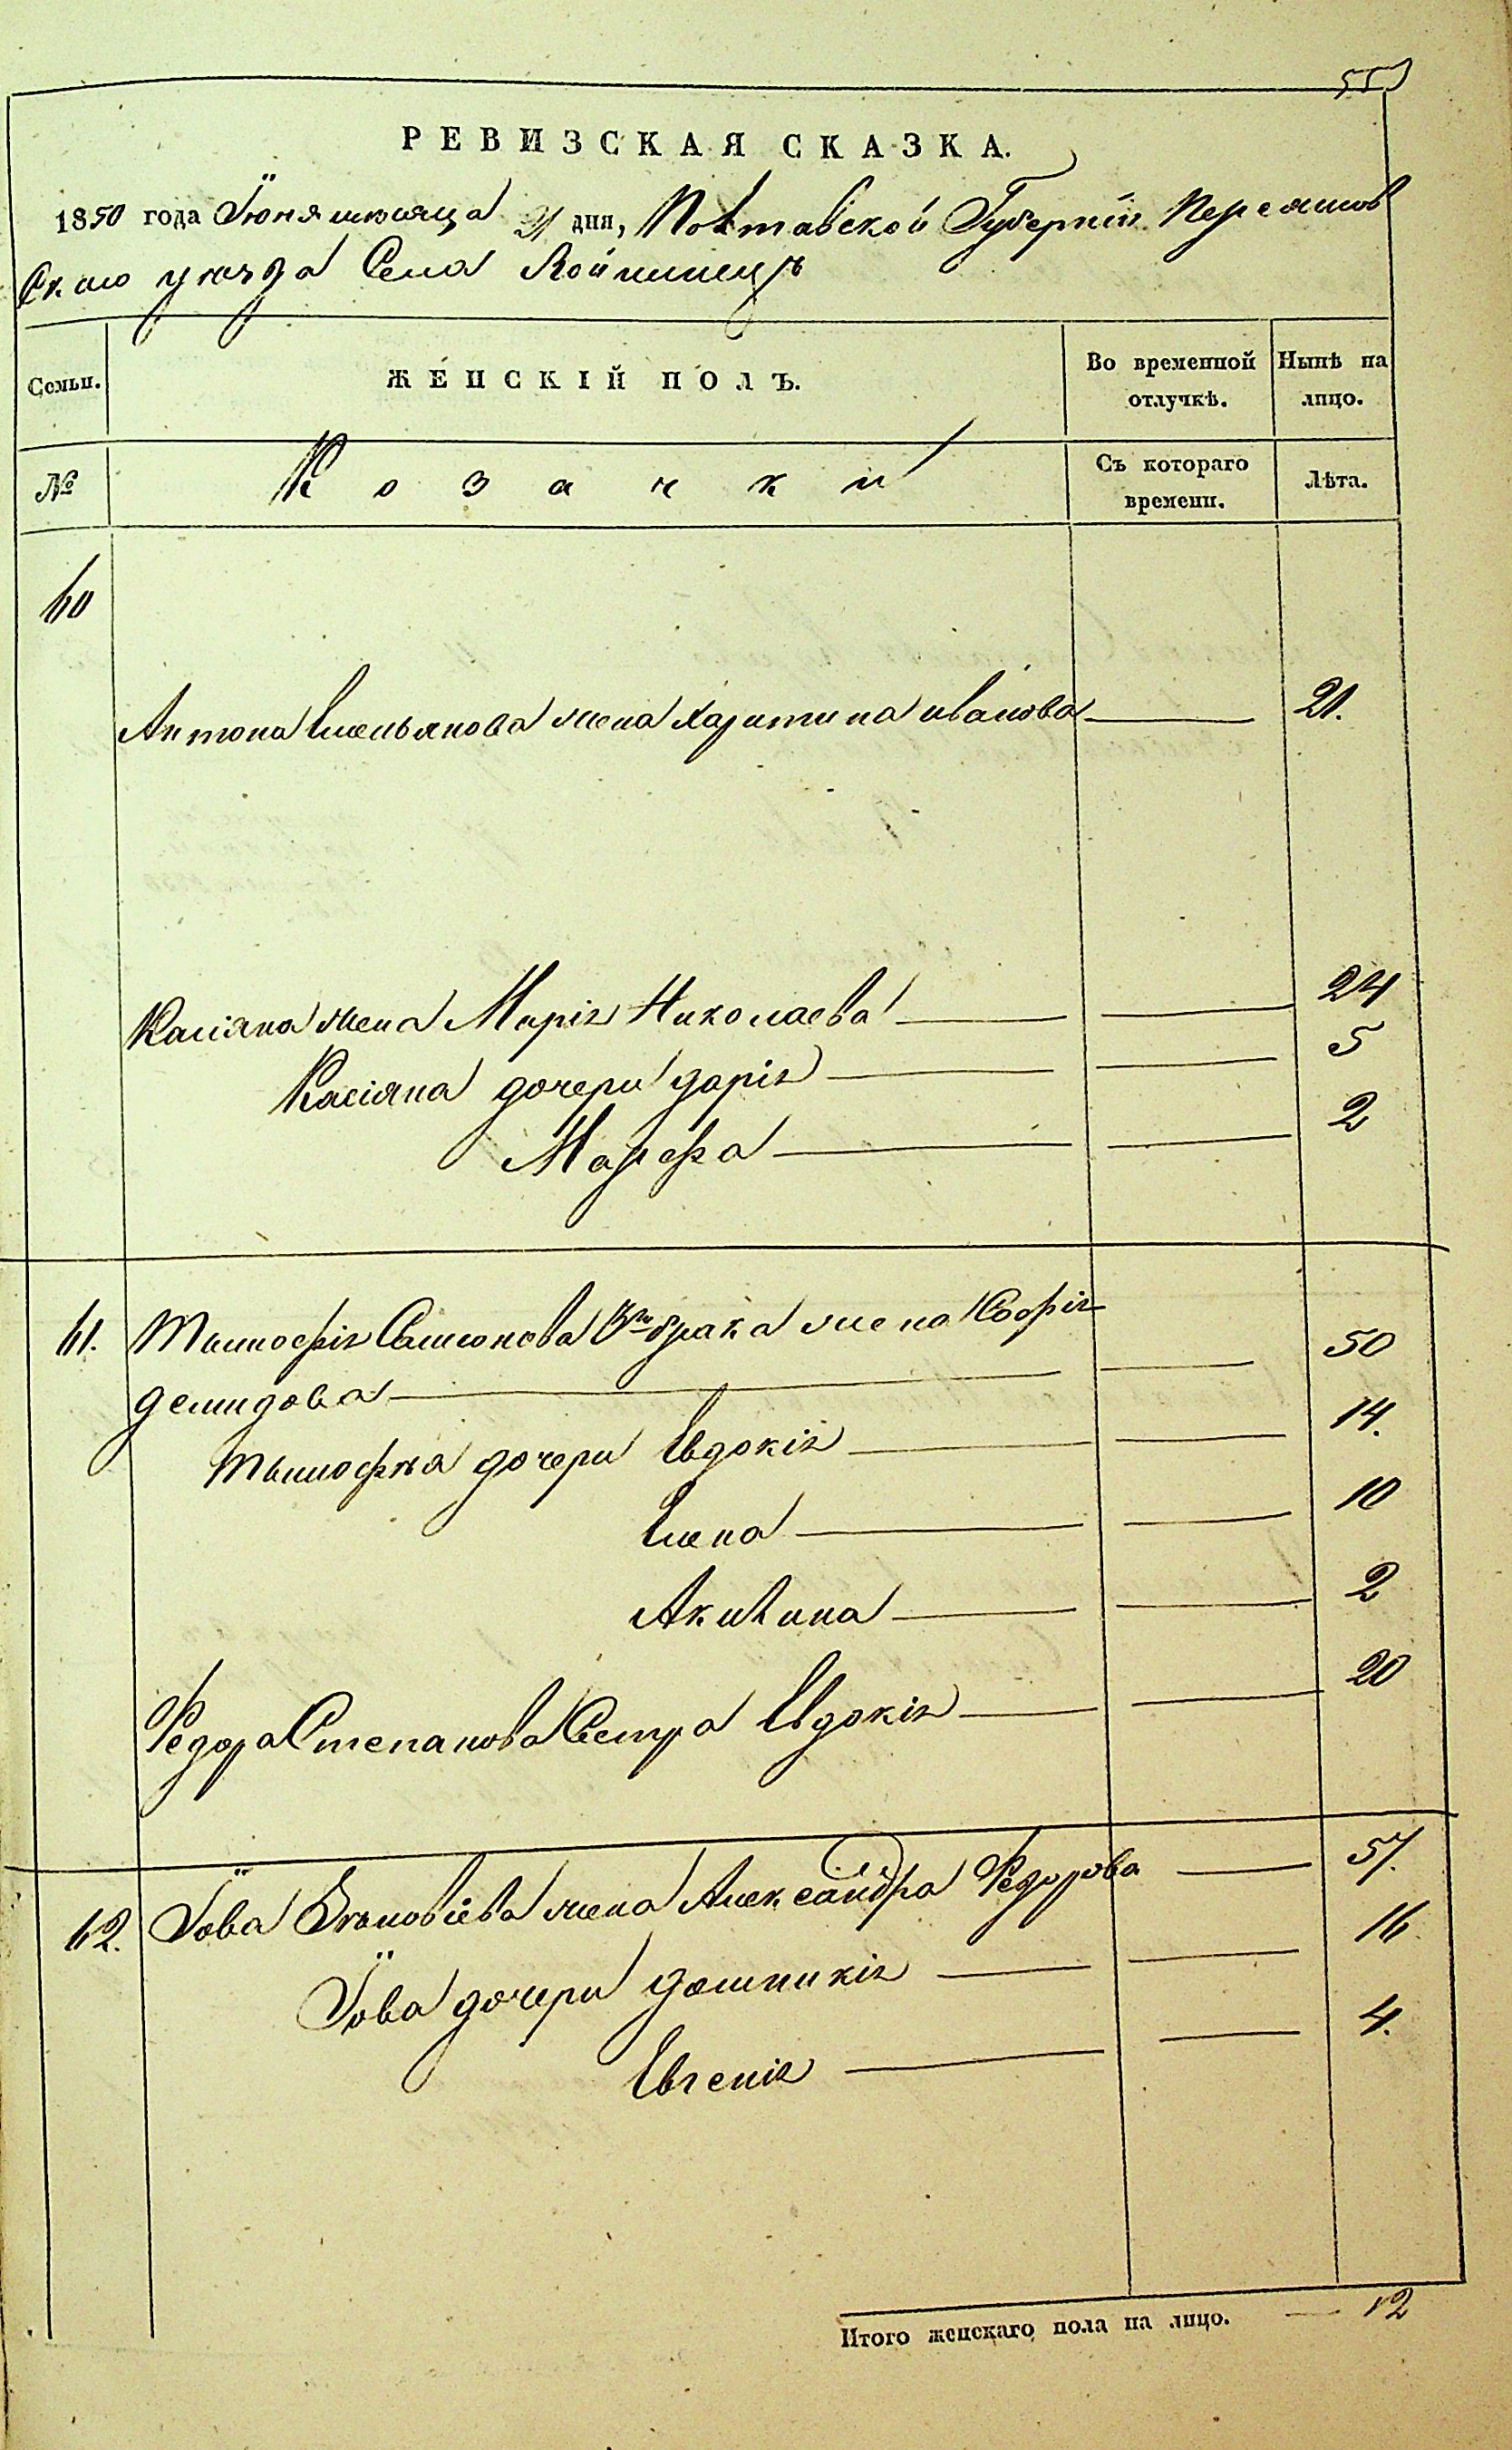 55
РЕВИЗСКАЯ СКАЗКА.
1850 года Іюня мѣсяца 21 дня, Полтавской Губерніи Переяслов
скаго уѣзда Села Войтовецъ
Семьи.
ЖЕНСКІЙ ПОЛЪ.
Во временной отлучкѣ.
Нынѣ на лицо.
№
Козачки
Съ котораго времени.
Лѣта.
60
Антона Емельянова жена Харитина иванова 21.
Касіяна жена Марія Николаева 24
Касіяна дочери дарія 5
Марфа 2
61. Тимофія Самсонова 3го брака жена Софія
демидова 50
Тимофѣя дочери Евдокія 14.
Елена 10
Акилина 2
Федора Степанова Сестра Евдокія 20
62. Іова Зѣновіева жена Александра Федорова 57.
Іова дочери домникія 16
Евгенія 4.
Итого женскаго пола на лицо. 12